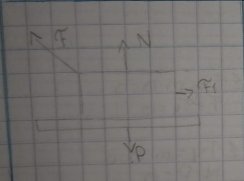 F
N
F₁
P